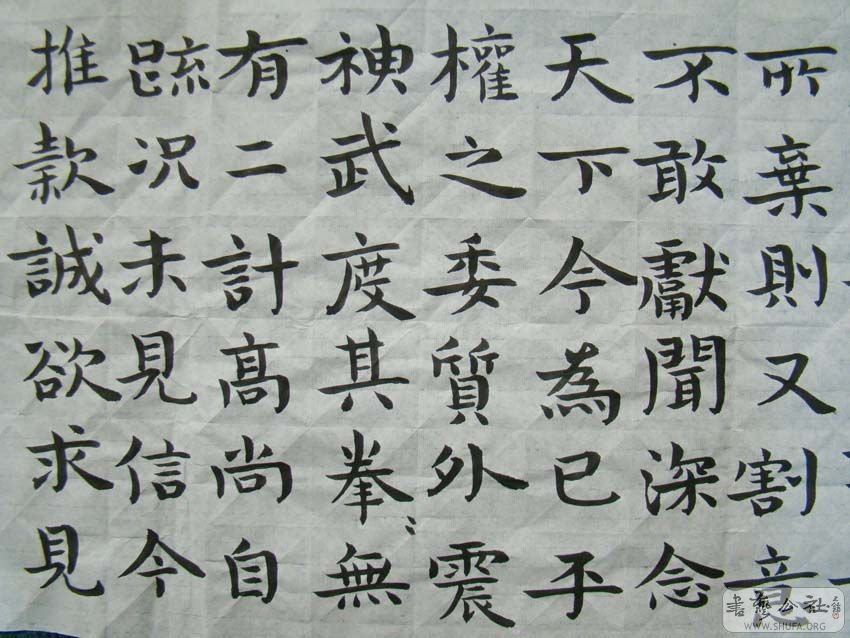 所棄則又割意
不敢獻聞深念
天下今為已平
權之委質外震
神武度其拳〻無
有二計髙尚自
䟽况未見信今
推款誠欲求見
書藝公社
WWW.SHUFA.ORG